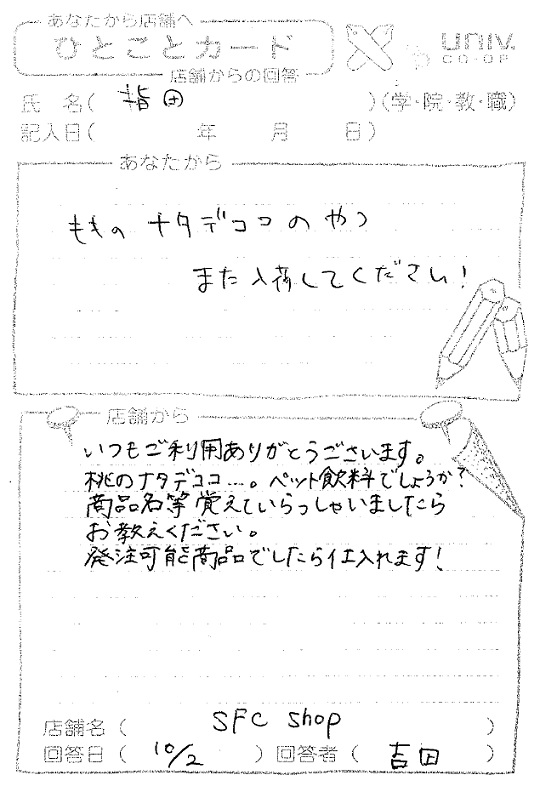 あなたから店舗へ
ひとことカード
店舗からの回答
univ.
CO-OP
氏 名( 指田 )(学・院・教・職)
記入日( 年 月 日)
あなたから
ももの ナタデココのやつ
また入荷してください!
店舗から
いつもご利用ありがとうございます。
桃のナタデココ…。ペット飲料でしょうか?
商品名等覚えていらっしゃいましたら
お教えください。
発注可能商品でしたら仕入れます!
店舗名( SFC shop )
回答日( 10/2 )回答者( 吉田 )